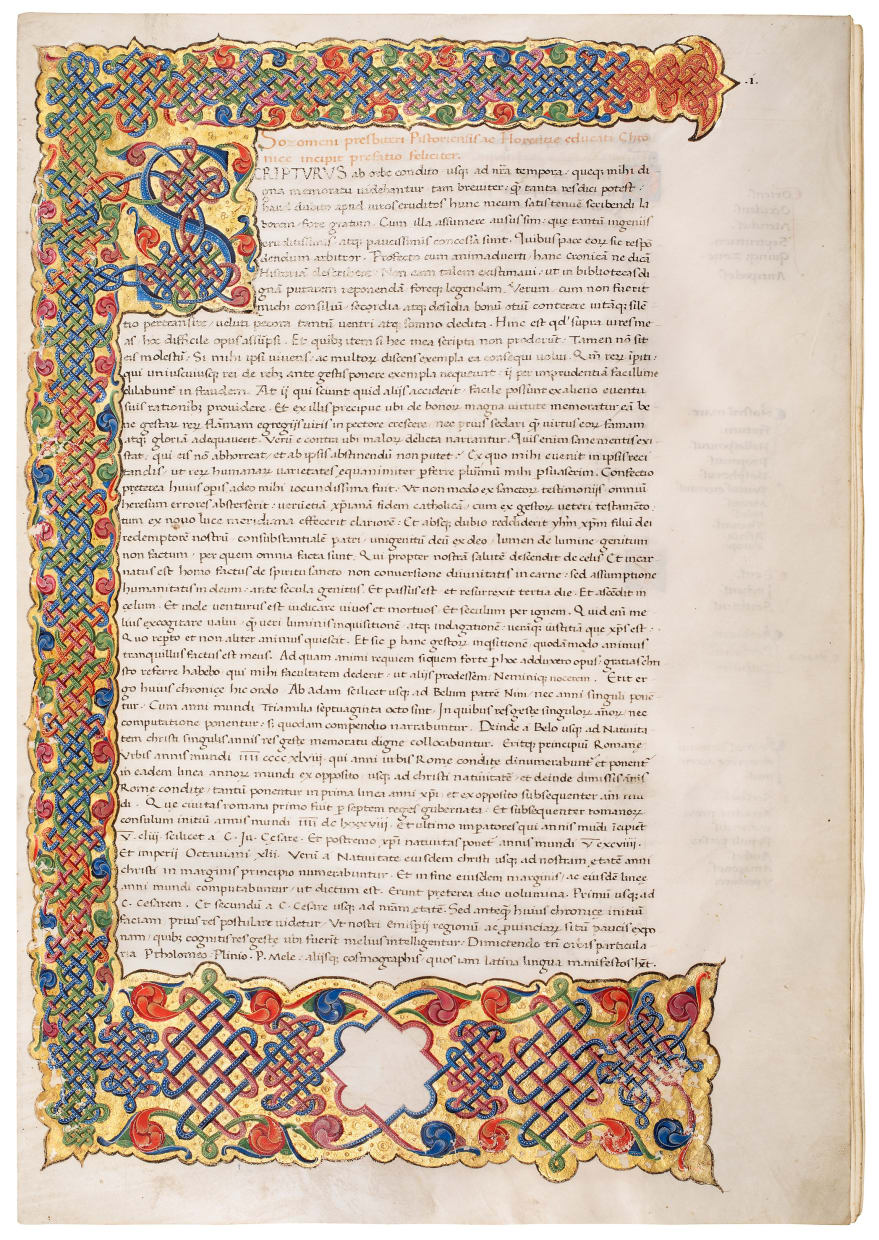 .1.
Sozomeni presbiteri Pistoriensis ac Florentie educati Chro
nice incipit prefatio feliciter.
SCRIPTURVS ab orbe condito usq; ad nr̄a tempora: queq; mihi di
gna memoratu videbantur tam breviter: q̄ tanta res dici potest:
haud dubito apud viros eruditos hunc meum satis tenuē scribendi la
borem fore gratum. Cum illa assumere ausus sim: que tantū ingeniis
eruditissimis atq; paucissimis concessa sint. Quibus pace eoꝝ sic respō
dendum arbitror. Profecto cum animadverti hanc cronicā ne dicā
Historiā describere: Non eam talem existimavi: ut in bibliotecas di
gnā putarem reponendā foreq; legendam. Verum cum non fuerit
mihi consiliū: secordia atq; desidia bonū otiū conterere vitāq; silē
tio pertransire: veluti pecora tantū ventri atq; somno dedita. Hinc est qd̄ supra vires me
as hoc difficile opus assūpsi. Et quibz itera si hec mea scripta non proderūt: Tamen nō sit
eis molestū: Si mihi ipsi vivens: ac multoꝝ discens exempla ea consequi volui.
qui uniuscuiusq; rei de rebz ante gestis ponere exempla nequeunt: ij per imprudentiā facillime
dilabunt̄ in fraudem. At ij qui sciunt quid alijs acciderit: facile possunt ex alieno eventu
suis rationibz providere. Et ex illis precipue ubi de bonoꝝ magna virtute memoratur eā be
ne gestaꝝ reꝝ flāmam egregijs viris in pectore crescere: nec prius sedari q̄ virtus eoꝝ famam
atq; gloriā adequaverit. Verū e contra ubi maloꝝ delicta narrantur. Quis enim sane mentis exi
stat, qui eis nō abhorreat, et ab ipsis abstinendū non putet? Ex quo mihi evenit in ipsis reci
tandis, ut reꝝ humanaꝝ varietates equanimiter p̄ferre plurimū mihi p̄suaserim. Confectio
preterea huius opis adeo mihi iocundissima fuit. Vt non modo ex sanctoꝝ testimonijs omniū
heresum errores absterserit: verū etiā xp̄ianā fidem catholicā: cum ex gestoꝝ veteri testamēto:
tum ex novo luce meridiana effecerit clariorē: Et absq; dubio reddiderit yhm̄ xp̄m filiū dei
redemptorē nostrū: consubstantialē patri: unigenitū deū ex deo: lumen de lumine genitum
non factum: per quem omnia facta sunt. Qui propter nostrā salutē descendit de celis. Et incar
natus est homo factus de spiritu sancto: non conversione divinitatis in carne: sed assumptione
humanitatis in deum: ante secula genitus. Et passus est et resurrexit tertia die. Et ascēdit in
celum. Et inde venturus est iudicare vivos et mortuos. Et seculum per ignem. Quid enī me
lius excogitare valui q̄ veri luminis inquisitionē: atq; indagationē: verāq; iustitiā que xp̄s est:
Quo repto et non aliter animus quiescit. Et sic p̄ hanc gestoꝝ inqsitionē: quodā modo animus
tranquillus factus est meus. Ad quam animi requiem siquem forte p̄ hoc adduxero opus: gratias chri
sto referre habebo: qui mihi facultatem dederit: ut alijs prodessem: Neminiq; nocerem. Erit er
go huius chronice hic ordo. Ab adam scilicet usq; ad Belum patrē Nini: nec anni singuli pone
tur. Cum anni mundi Triamilia septuaginta octo sint. In quibus res geste singuloꝝ añoꝝ nec
computatione ponentur: s; quodam compendio narrabuntur. Deinde a Belo usq; ad Nativita
tem christi singulis annis res geste memoratu digne collocabuntur. Eritq; principiū Romane
Vrbis annis mundi iiii cccc xlviii, qui anni urbis Rome condite dinumerabunt̄ et ponent̄
in eadem linea annoꝝ mundi ex opposito usq; ad christi nativitatē: et deinde dimissis annis
Rome condite, tantū ponentur in prima linea anni xp̄i, et ex opposito subsequenter anni mū
di. Que civitas romana primo fuit p̄ septem reges gubernata. Et subsequenter romanoꝝ
consulum initiū annis mundi iiii dc lxxxviii. Et ultimo impatores qui annis mūdi īcipiēt
V. cliij. scilicet a C. Iu. Cesare. Et postremo xp̄i nativitas ponet̄ annis mundi V. cxcviii.
Et imperii Octaviani xlii. Verū a Nativitate eiusdem christi usq; ad nostram etatē anni
christi in marginis principio numerabuntur. Et in fine eiusdem marginis ac eiusdē linee
anni mundi computabuntur ut dictum est. Erunt preterea duo volumina. Primū usq; ad
C. Cesarem. Et secundū a C. Cesare usq; ad nr̄am etatē. Sed anteq̄ huius chronice initiū
faciam prius res postulare videtur. Vt nostri Emisperij regionū ac provinciaꝝ sitū paucis expo
nam: quibz cognitis res geste ubi fuerit melius intelligentur: Dimictendo tn̄ eivas particula
ria Ptholomeo Plinio. P. Mele: alijsq; cosmographis quos iam latina lingua manifestos hēt.